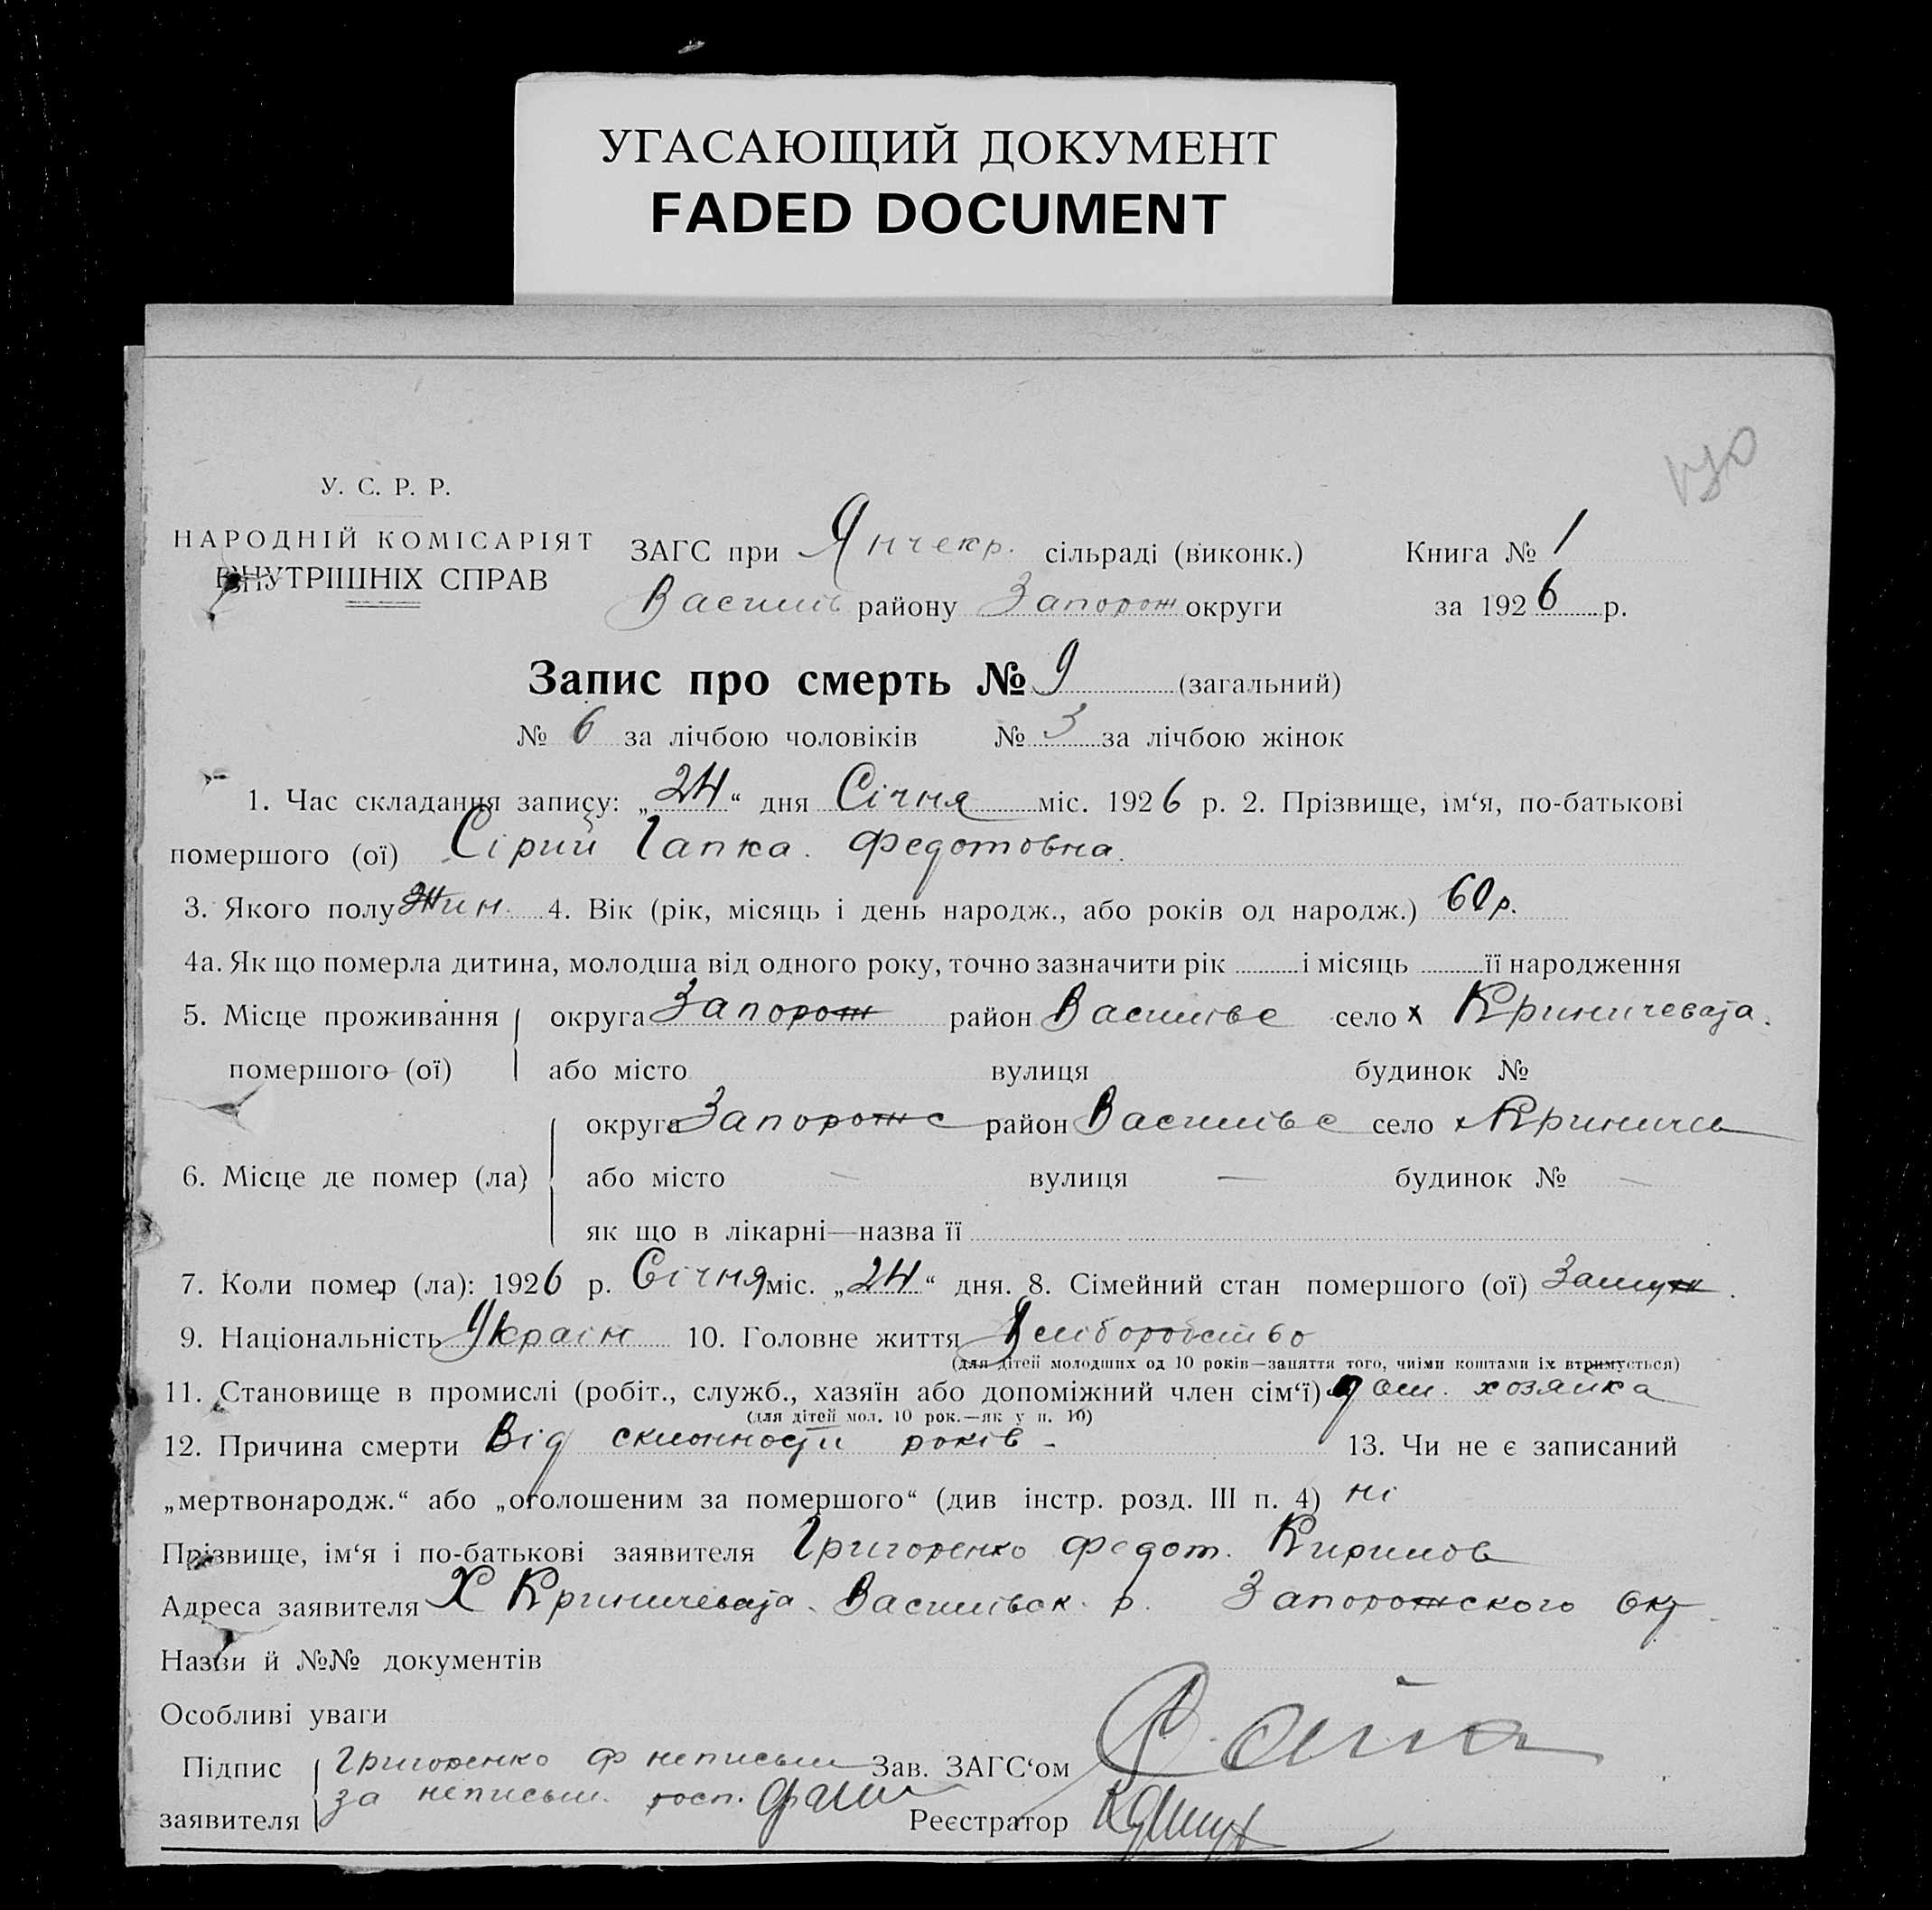 УГАСАЮЩИЙ ДОКУМЕНТ
FADED DOCUMENT
У. С. Р. Р.
НАРОДНІЙ КОМІСАРІЯТ
ВНУТРІШНІХ СПРАВ
ЗАГС при Янчекр. сільраді (виконк.)
Книга № 1
Василів району Запорож округи
за 1926 р.
Запис про смерть № 9 (загальний)
№ 6 за лічбою чоловіків № 3 за лічбою жінок
1. Час складання запису: „24“ дня Січня міс. 1926 р. 2. Прізвище, ім‘я, по-батькові
помершого (ої) Сірий Гапка. Федотовна.
3. Якого полу Жин. 4. Вік (рік, місяць і день народж., або років од народж.) 60 р.
4а. Як що померла дитина, молодша від одного року, точно зазначити рік і місяць її народження
5. Місце проживання округа Запорож район Василивс село х Криничеваја.
помершого (ої) або місто вулиця будинок №
округа Запорожс район Василівс село х Кринича
6. Місце де помер (ла) або місто — вулиця — будинок № —
як що в лікарні—назва її
7. Коли помер (ла): 1926 р. Січня міс. „24“ дня. 8. Сімейний стан помершого (ої) Замуж.
9. Національність Україн 10. Головне життя
(для дітей молодших од 10 років—заняття того, чиїми коштами їх втримується)
11. Становище в промислі (робіт., служб., хазяїн або допоміжний член сім‘ї) дом. хозяйка
(для дітей мол. 10 рок.—як у п. 10)
12. Причина смерти Від склонности років - 13. Чи не є записаний
„мертвонародж.“ або „оголошеним за помершого“ (див інстр. розд. III п. 4) ні
Прізвище, ім‘я і по-батькові заявителя Григоренко Федот. Кирилов
Адреса заявителя Х Криничеваја. Василівск. р. Запорожского ок
Назви й №№ документів
Особливі уваги
Підпис Григоренко Ф неписьм Зав. ЗАГС‘ом
заявителя за неписьм. росп. Реєстратор